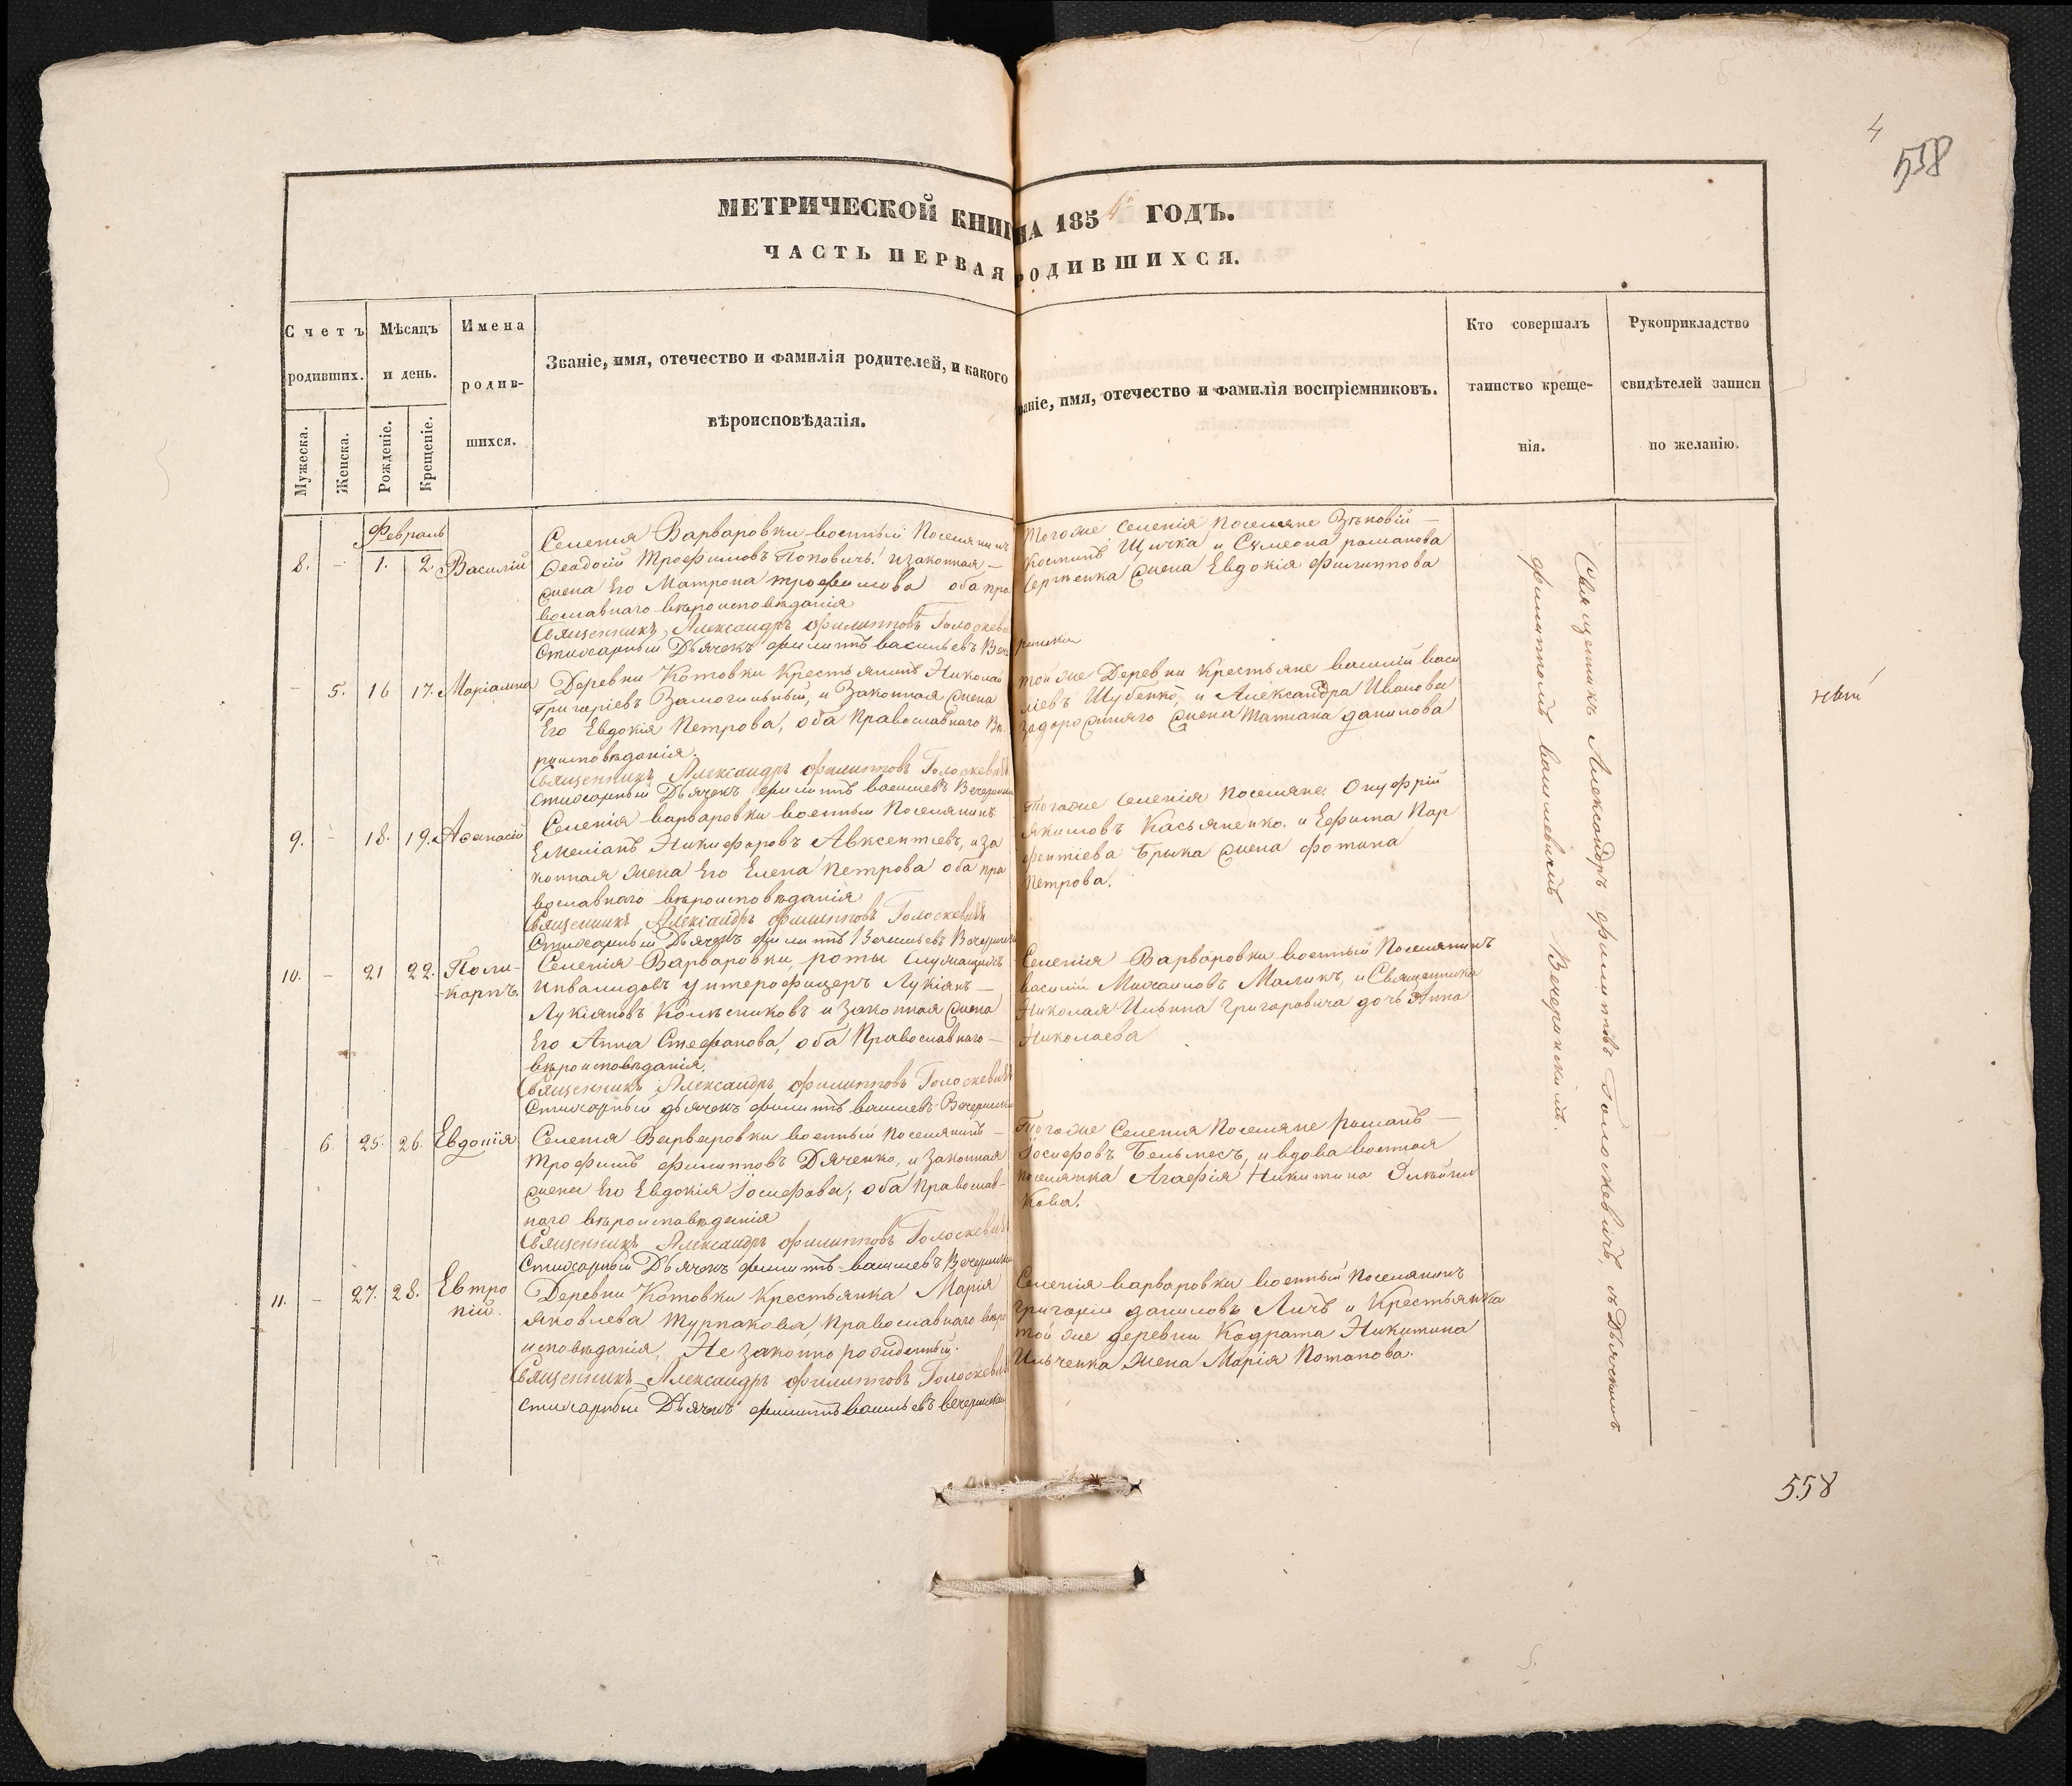 4
558
МЕТРИЧЕСКОЙ КНИГ НА 1854 ГОДЪ.
ЧАСТЬ ПЕРВАЯ РОДИВШИХСЯ.
Счетъ родивших.
Мужеска.
Женска.
Мѣсяцъ и день.
Рожденіе.
Крещеніе.
Имена родившихся.
Званіе, имя, отечество и фамилія родителей, и какого
вѣроисповѣданія.
Званіе, имя, отечество и фамилія воспріемниковъ.
Кто совершалъ
таинство креще-
нія.
Рукоприкладство
свидѣтелей записи
по желанію.
Февраль
8. - 1. 2. Василій
Селенія Варваровки военный Поселянинъ
Ѳеодосій Трофимовъ Поповичъ, и законная
жена Его Матрона Трофимова оба пра
вославнаго вѣроисповѣданія
Священникъ Александръ Филипповъ Голоскевичъ
Стихарный Дьячекъ Филиппъ Васильевъ Вече
ринскій
Тогоже Селенія Поселяне
Щичка и Сѵмеона Романова
Сергѣенка жена Евдокія Филиппова
- 5. 16 17. Маріамна
Деревни Котовки Крестьянинъ Николай
Григоріевъ Замогильный, и Законная жена
Его Евдокія Петрова, оба Православнаго Вѣ
роисповѣданія.
Священникъ Александръ Филипповъ Голоскевичъ
Стихарный Дьячекъ Филиппъ Васильевъ Вечеринскій
той же Деревни Крестьяне Василій Васи
ліевъ Шубенко, и Александра Иванова
Задорожняго жена Татіана Данилова
9. - 18. 19. Аѳанасій
Селенія Варваровки военный Поселянинъ
Емеліанъ Никифоровъ Авксентіевъ, и за
конная жена Его Елена Петрова оба пра
вославнаго вѣроисповѣданія
Священникъ Александръ Филипповъ Голоскевичъ
Стихарный Дьячекъ Филиппъ Васильевъ Вечеринскій
Тогоже Селенія Поселяне Онуфрій
Якимовъ Касьяненко. и Ефима Пар
фентіева Брыка жена Фотина
Петрова.
10. - 21 22. Поли-
-карпъ.
Селенія Варваровки, роты служащихъ
инвалидовъ унтерофицеръ Лукіянъ
Лукіяновъ Колѣсниковъ и Законная жена
Его Анна Стефанова, оба Православнаго
вѣроисповѣданія,
Священникъ Александръ Филипповъ Голоскевичъ
Стихарный дьячекъ Филиппъ Васильевъ Вечеринскій
Селенія Варваровки военный Поселянинъ
Василій Михайловъ Маликъ, и Священника
Николая Ильина Григоровича дочь Анна
Николаева
6. 25. 26. Евдокія
Селенія Варваровки военный поселянинъ
Трофимъ Филипповъ Дяченко, и Законная
жена Его Евдокія Іосифова, оба Православ-
наго вѣроисповѣданія
Священникъ Александръ Филипповъ Голоскевичъ
Стихарный Дьячекъ Филиппъ Васильевъ Вечеринскій
Тогоже Селенія Поселяне Романъ
Іосифовъ Бельмесъ, и вдова военная
поселянка Агафія Никитина
кова.
11. - 27. 28. Евтро
пій.
Деревни Котовки Крестьянка Марія
Яковлева Турпакова, Православнаго вѣро
исповѣданія, Не законно рожденный.
Священникъ Александръ Филипповъ Голоскевичъ
Стихарный Дьячекъ Филиппъ Васильевъ Вечеринскій
Селенія Варваровки военный поселянинъ
Григорій Даниловъ Личъ и Крестьянка
той же деревни Кодрата Никитина
Ильченка жена Марія Потапова.
Священникъ Александръ Филипповъ Голоскевичъ, съ Дьячкомъ
Филиппомъ Васильевичемъ Вечеринскимъ.
558